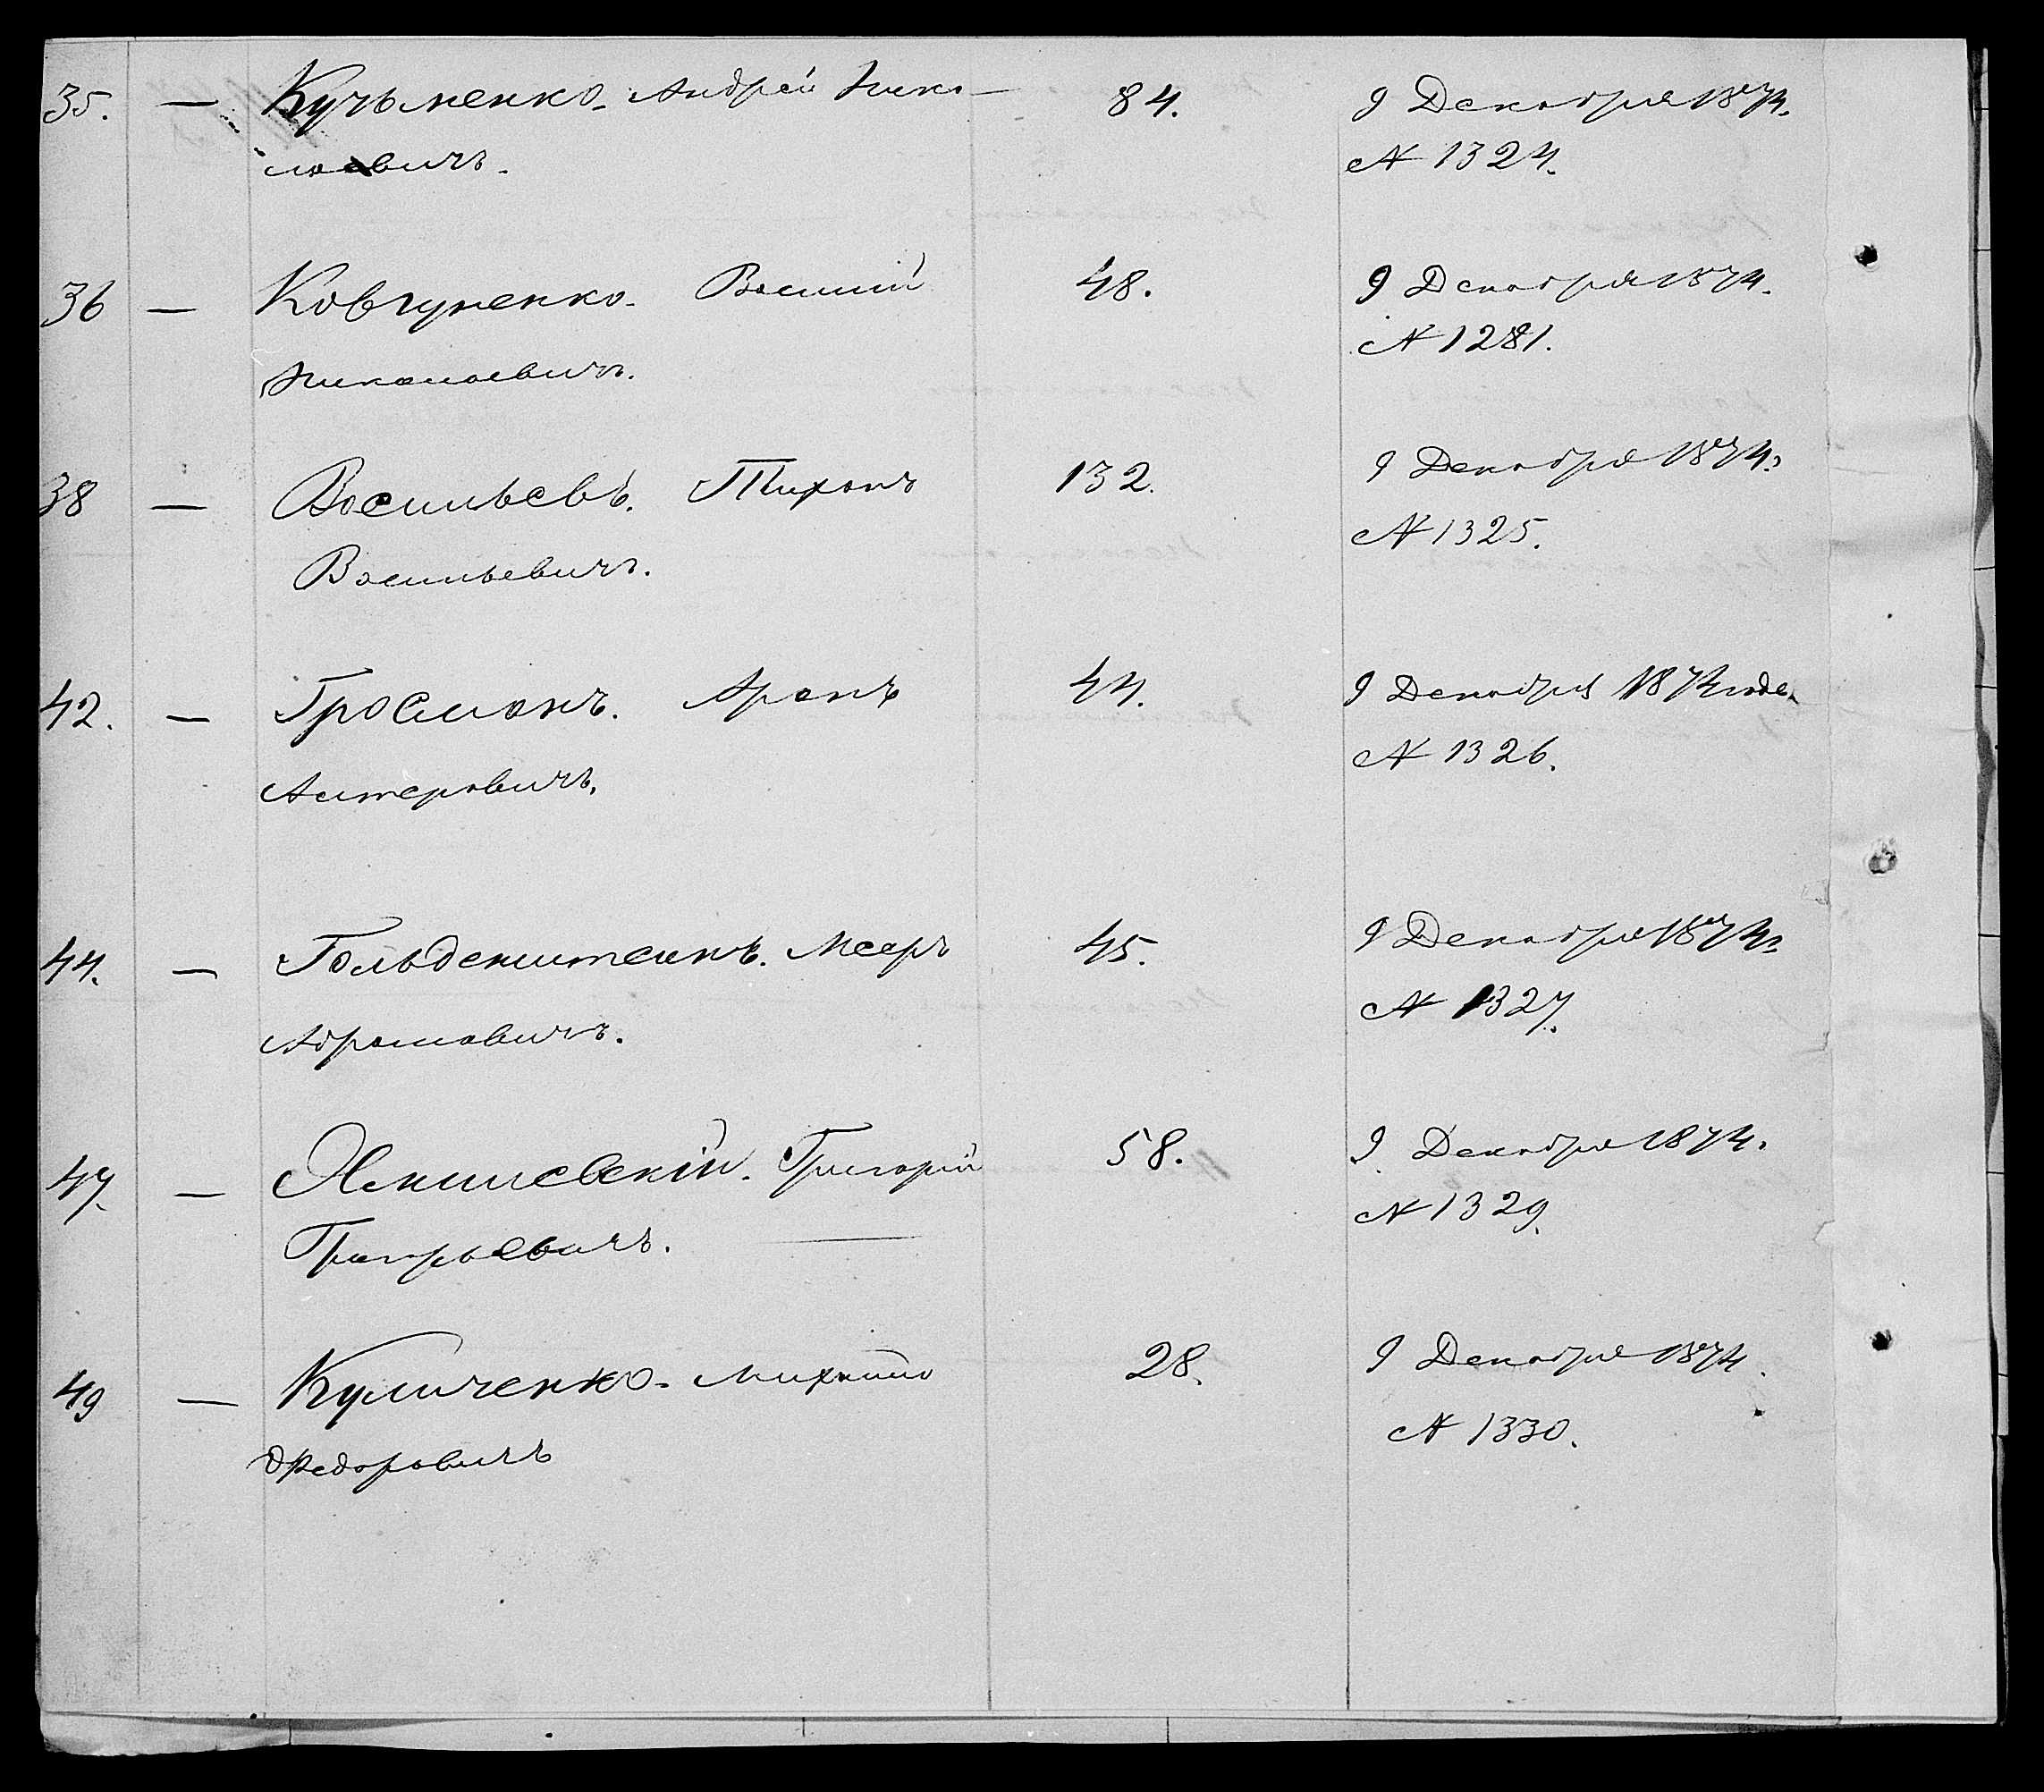 35. — Кузьменко Андрей Нико- 84. 9 Декабря 1874.
лаевичъ. № 1324.
36 — Ковгуненко. Василій 48. 9 Декабря 1874.
Николаевичъ. № 1281.
38 — Васильевъ. Тихонъ 132. 9 Декабря 1874.
Васильевичъ. № 1325.
42. — Гросманъ. Аронъ 44. 9 Декабря 1874 года
Антеровичъ. № 1326.
44. — Гольденштейнъ. Мееръ 45. 9 Декабря 1874
Абрамовичъ. № 1327.
47. — Якишевскій. Григорій 58. 9. Декабря 1874.
Григорьевичъ. № 1329.
49 — Куличенко. Михаилъ 28. 9 Декабря 1874.
Федоровичъ № 1330.